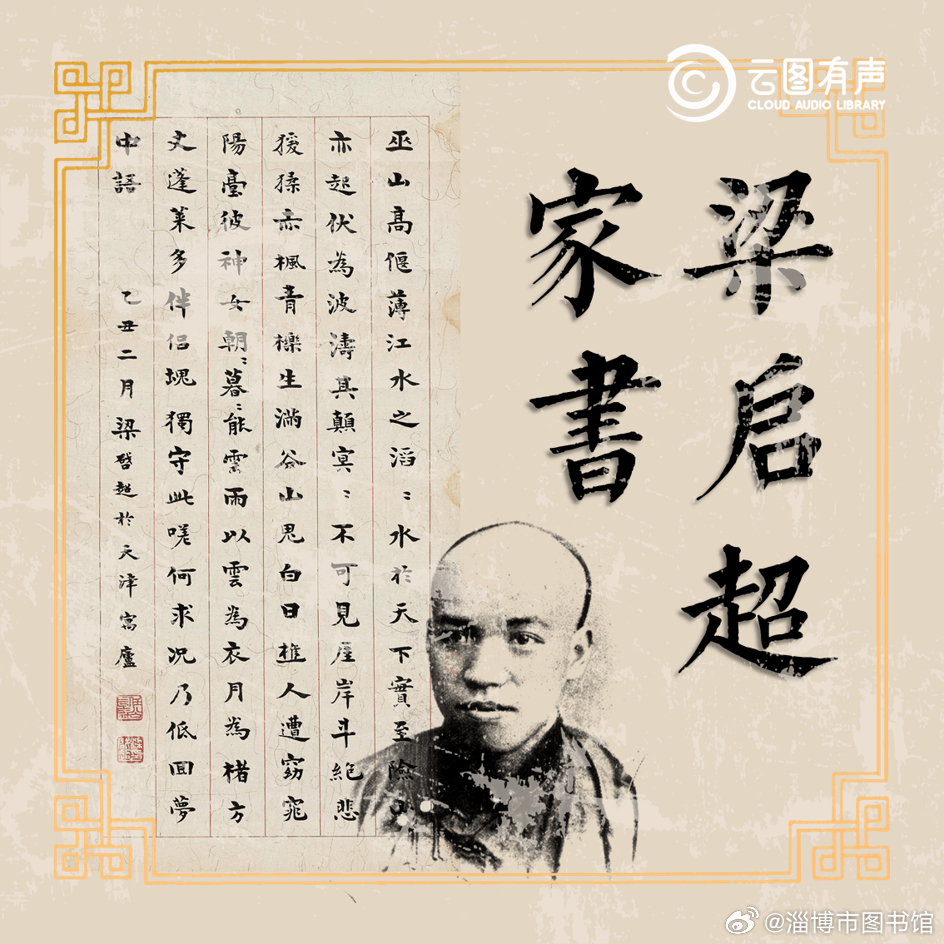 云图有声
CLOUD AUDIO LIBRARY
梁启超
家書
巫山高偃薄江水之滔〻水於天下實至險山
亦起伏為波濤其顛冥〻不可見厓岸斗絕悲
猨猱赤楓青櫟生滿谷山鬼白日樵人遭窈窕
陽臺彼神女朝〻暮〻能雲雨以雲為衣月為楮方
丈蓬萊多伴侶塊獨守此嗟何求況乃低回夢
中語 乙丑二月梁啓超於天津寓廬
@淄博市图书馆